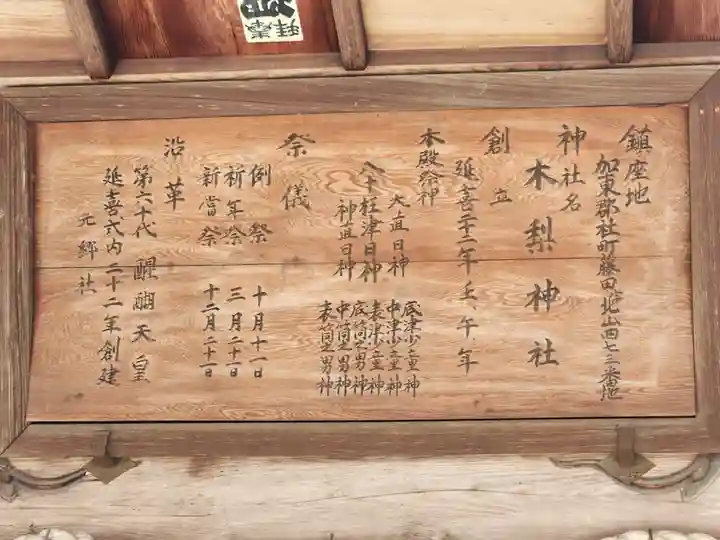 鎮座地
加東郡社町藤田北山四七三番地
神社名
木梨神社
創立
延喜二十二年壬、午、年
本殿祭神
大直日神
八十枉津日神
神直日神
底津少童神
中津少童神
表津少童神
底筒之男神
中筒之男神
表筒之男神
祭儀
例祭 十月十一日
祈年祭 三月二十一日
新嘗祭 十二月二十一日
沿革
第六十代 醍醐天皇
延喜式内二十二年創建
元郷社
拝奉